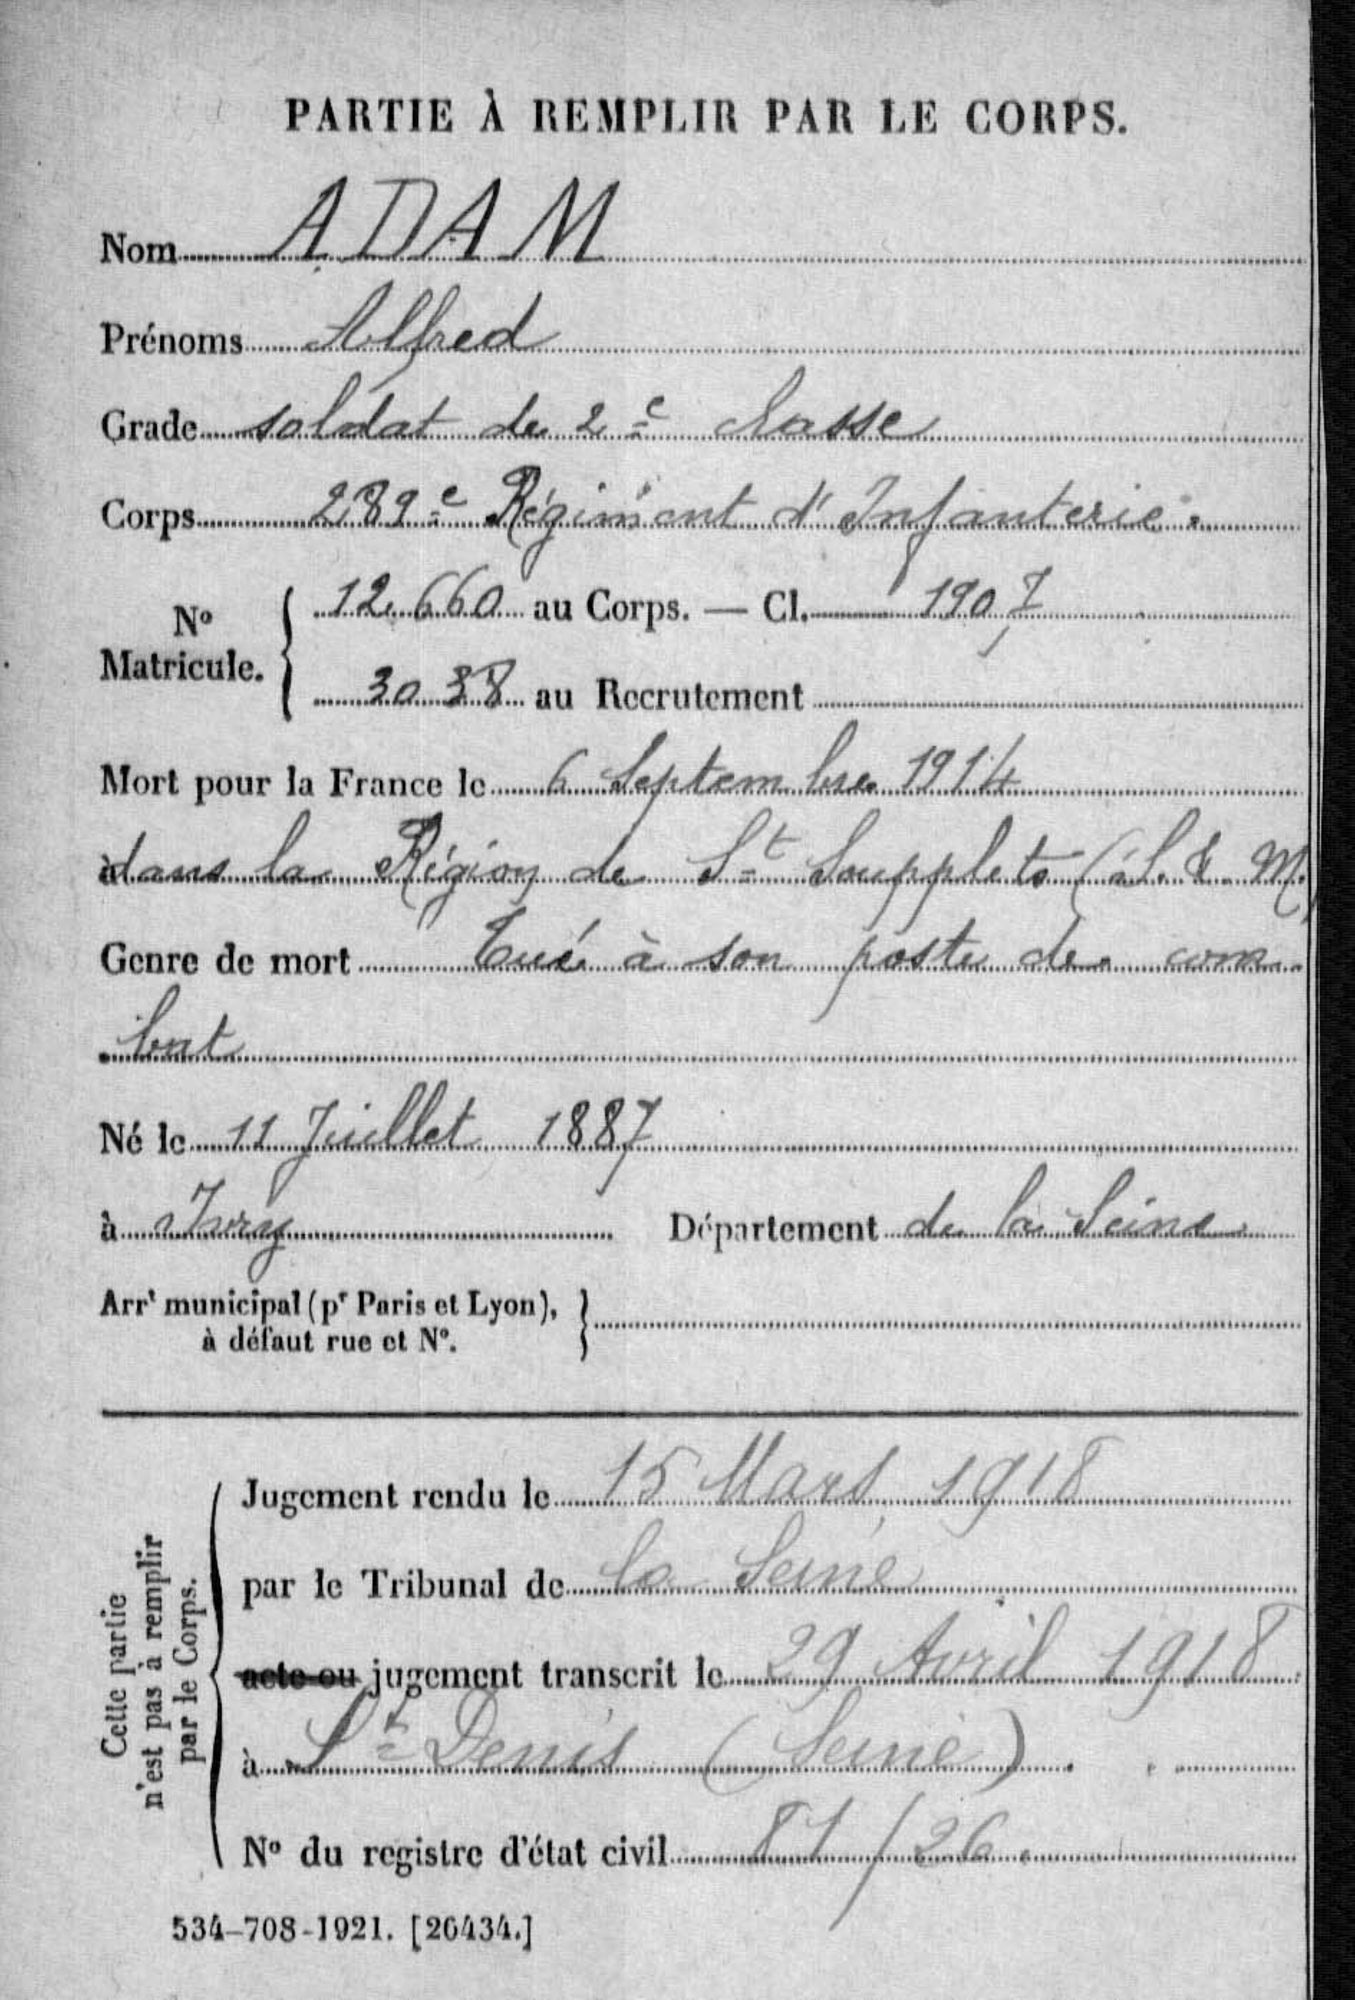 PARTIE À REMPLIR PAR LE CORPS.
Nom ADAM
Prénoms Alfred
Grade soldat de 2e classe
Corps 289e Régiment d'Infanterie.
No Matricule. { 12660 au Corps. — Cl. 1907
3038 au Recrutement
Mort pour la France le 6 Septembre 1914
à dans la Région de St Soupplets (S. & M.)
Genre de mort Tué à son poste de com-
bat
Né le 11 Juillet 1887
à Ivry Département de la Seine
Arrt municipal (pr Paris et Lyon), }
à défaut rue et No.
Cette partie
n'est pas à remplir
par le Corps.
Jugement rendu le 15 Mars 1918
par le Tribunal de la Seine
acte ou jugement transcrit le 29 Avril 1918.
à St Denis (Seine)
No du registre d'état civil 81/26.
534-708-1921. [26434.]